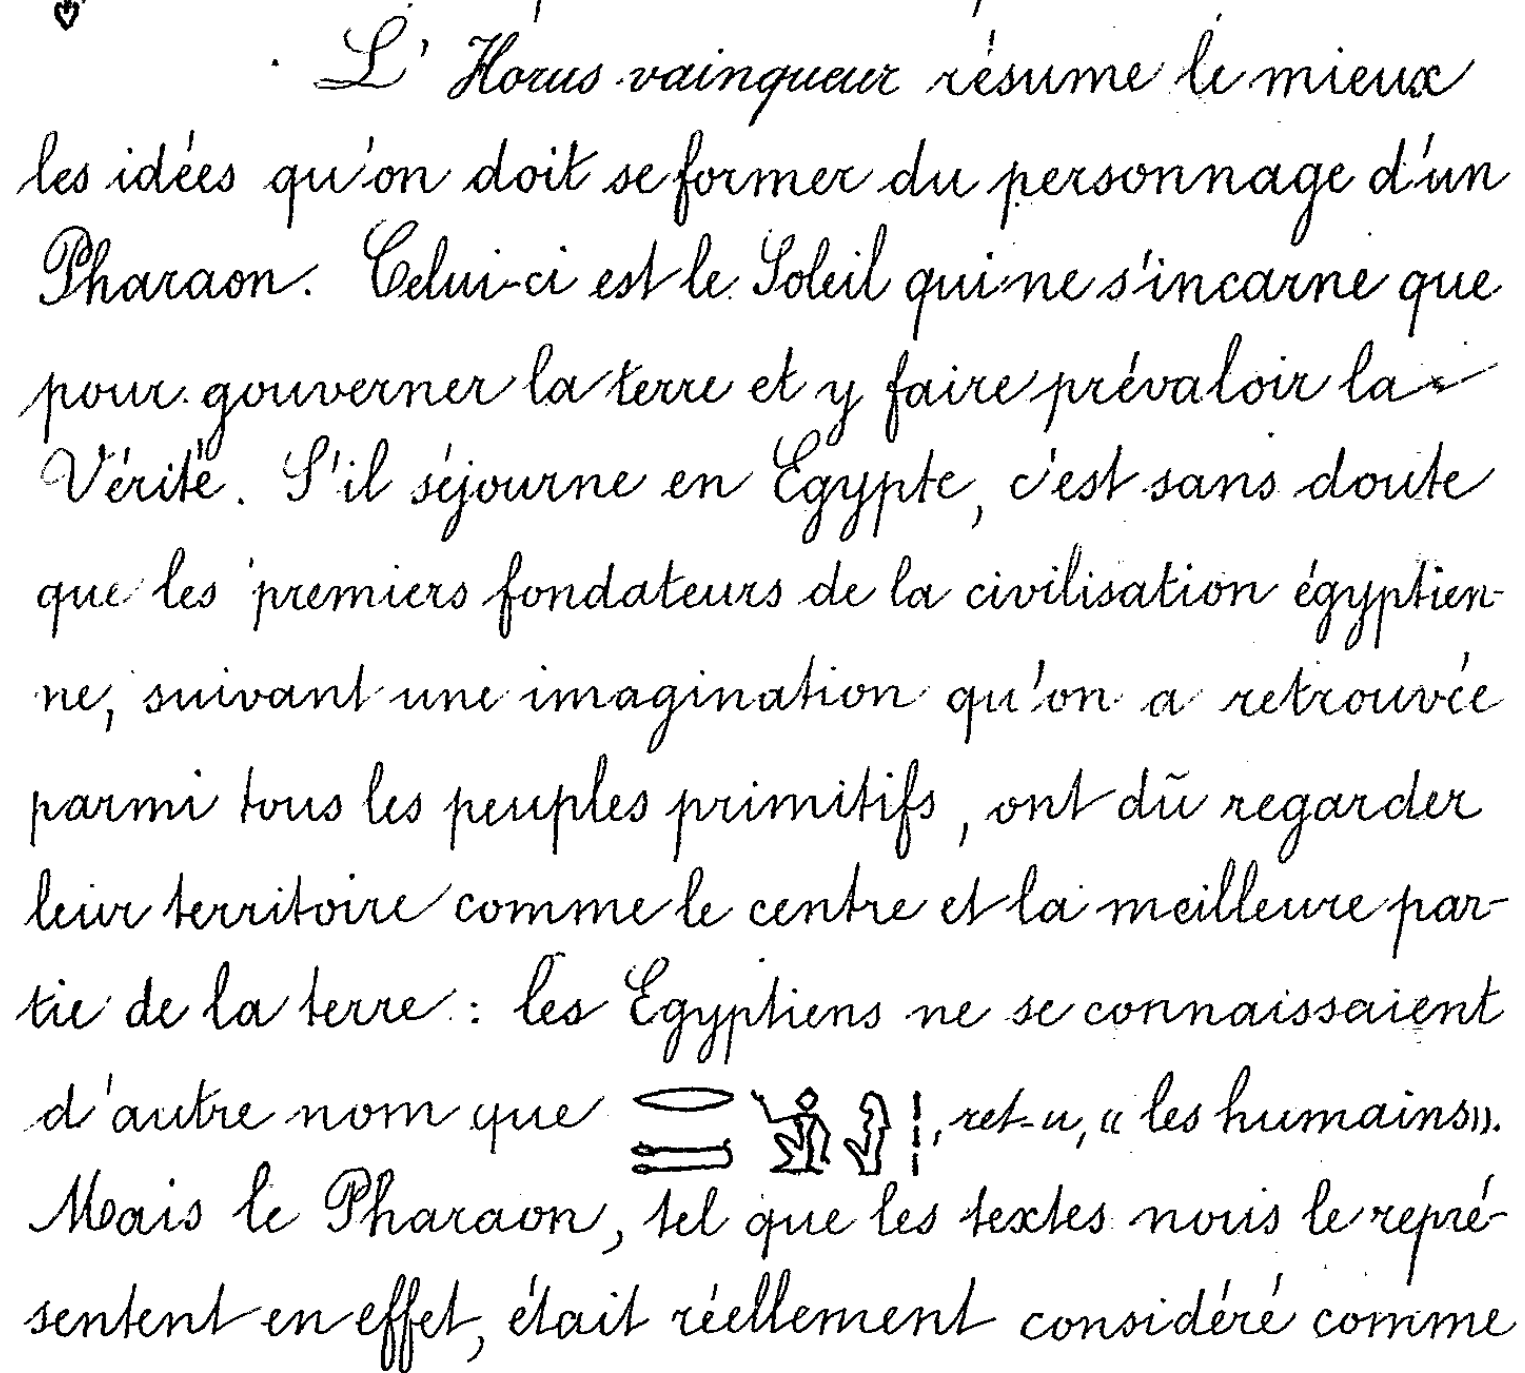 L'Horus vainqueur résume le mieux
les idées qu'on doit se former du personnage d'un
Pharaon. Celui-ci est le Soleil qui ne s'incarne que
pour gouverner la terre et y faire prévaloir la
Vérité. S'il séjourne en Egypte, c'est sans doute
que les premiers fondateurs de la civilisation égyptien-
ne, suivant une imagination qu'on a retrouvée
parmi tous les peuples primitifs, ont dû regarder
leur territoire comme le centre et la meilleure par-
tie de la terre : les Egyptiens ne se connaissaient
d'autre nom que , ret-u, « les humains ».
Mais le Pharaon, tel que les textes nous le repré-
sentent en effet, était réellement considéré comme